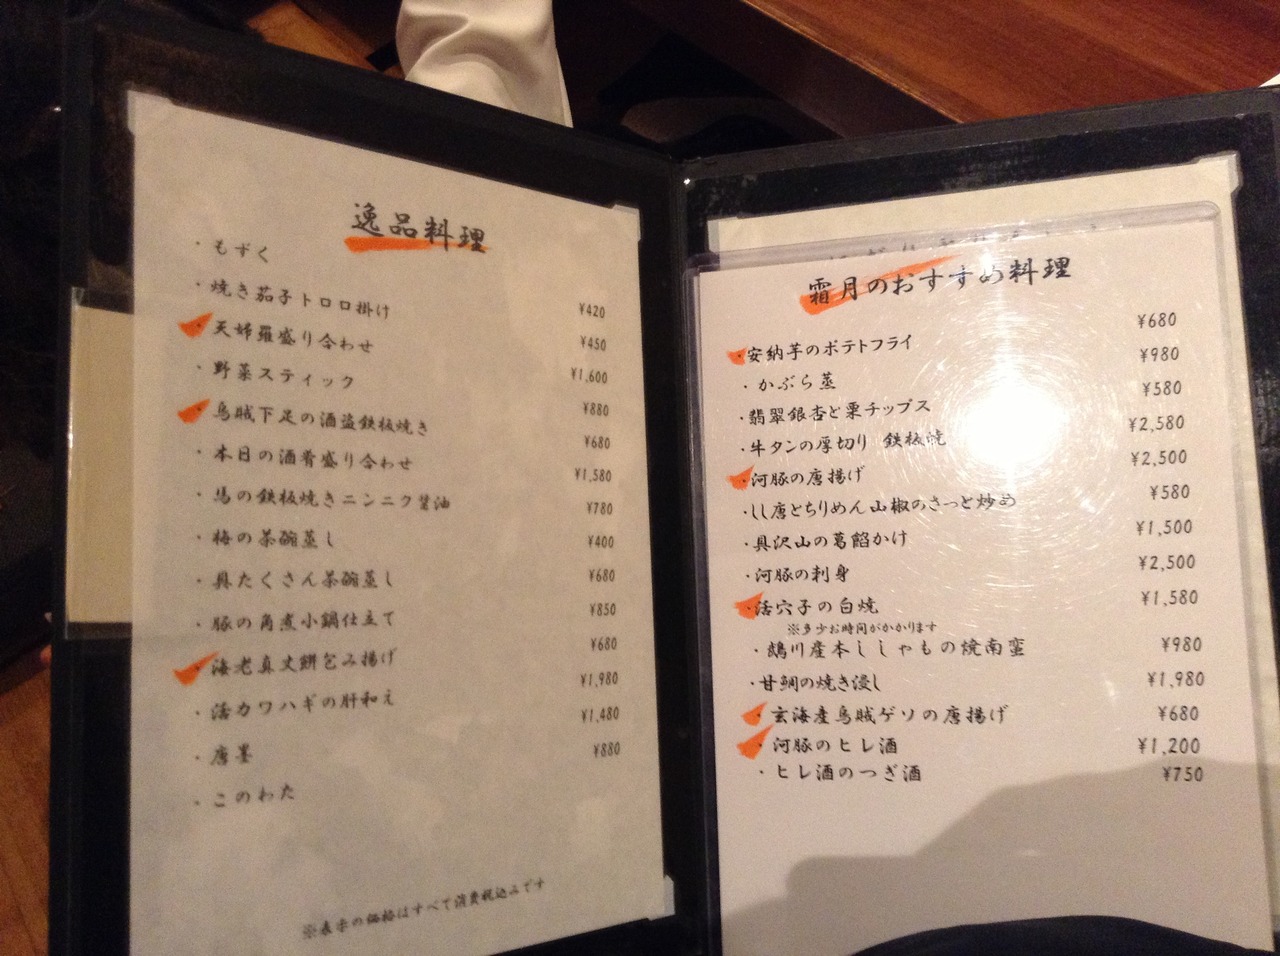 逸品料理
・もずく ¥420
・焼き茄子トロロ掛け ¥450
・天婦羅盛り合わせ ¥1,600
・野菜スティック ¥880
・烏賊下足の酒盗鉄板焼き ¥680
・本日の酒肴盛り合わせ ¥1,580
・馬の鉄板焼きニンニク醤油 ¥780
・梅の茶碗蒸し ¥400
・具たくさん茶碗蒸し ¥680
・豚の角煮小鍋仕立て ¥850
・海老真丈餅包み揚げ ¥680
・活カワハギの肝和え ¥1,980
・唐墨 ¥1,480
・このわた ¥880
※表示の価格はすべて消費税込みです
霜月のおすすめ料理
・安納芋のポテトフライ ¥680
・かぶら蒸 ¥980
・翡翠銀杏と栗チップス ¥580
・牛タンの厚切り 鉄板焼 ¥2,580
・河豚の唐揚げ ¥2,500
・しし唐とちりめん山椒のさっと炒め ¥580
・具沢山の葛餡かけ ¥1,500
・河豚の刺身 ¥2,500
・活穴子の白焼 ¥1,580
※多少お時間がかかります
・鵡川産本ししゃもの焼南蛮 ¥980
・甘鯛の焼き浸し ¥1,980
・玄海産烏賊ゲソの唐揚げ ¥680
・河豚のヒレ酒 ¥1,200
・ヒレ酒のつぎ酒 ¥750